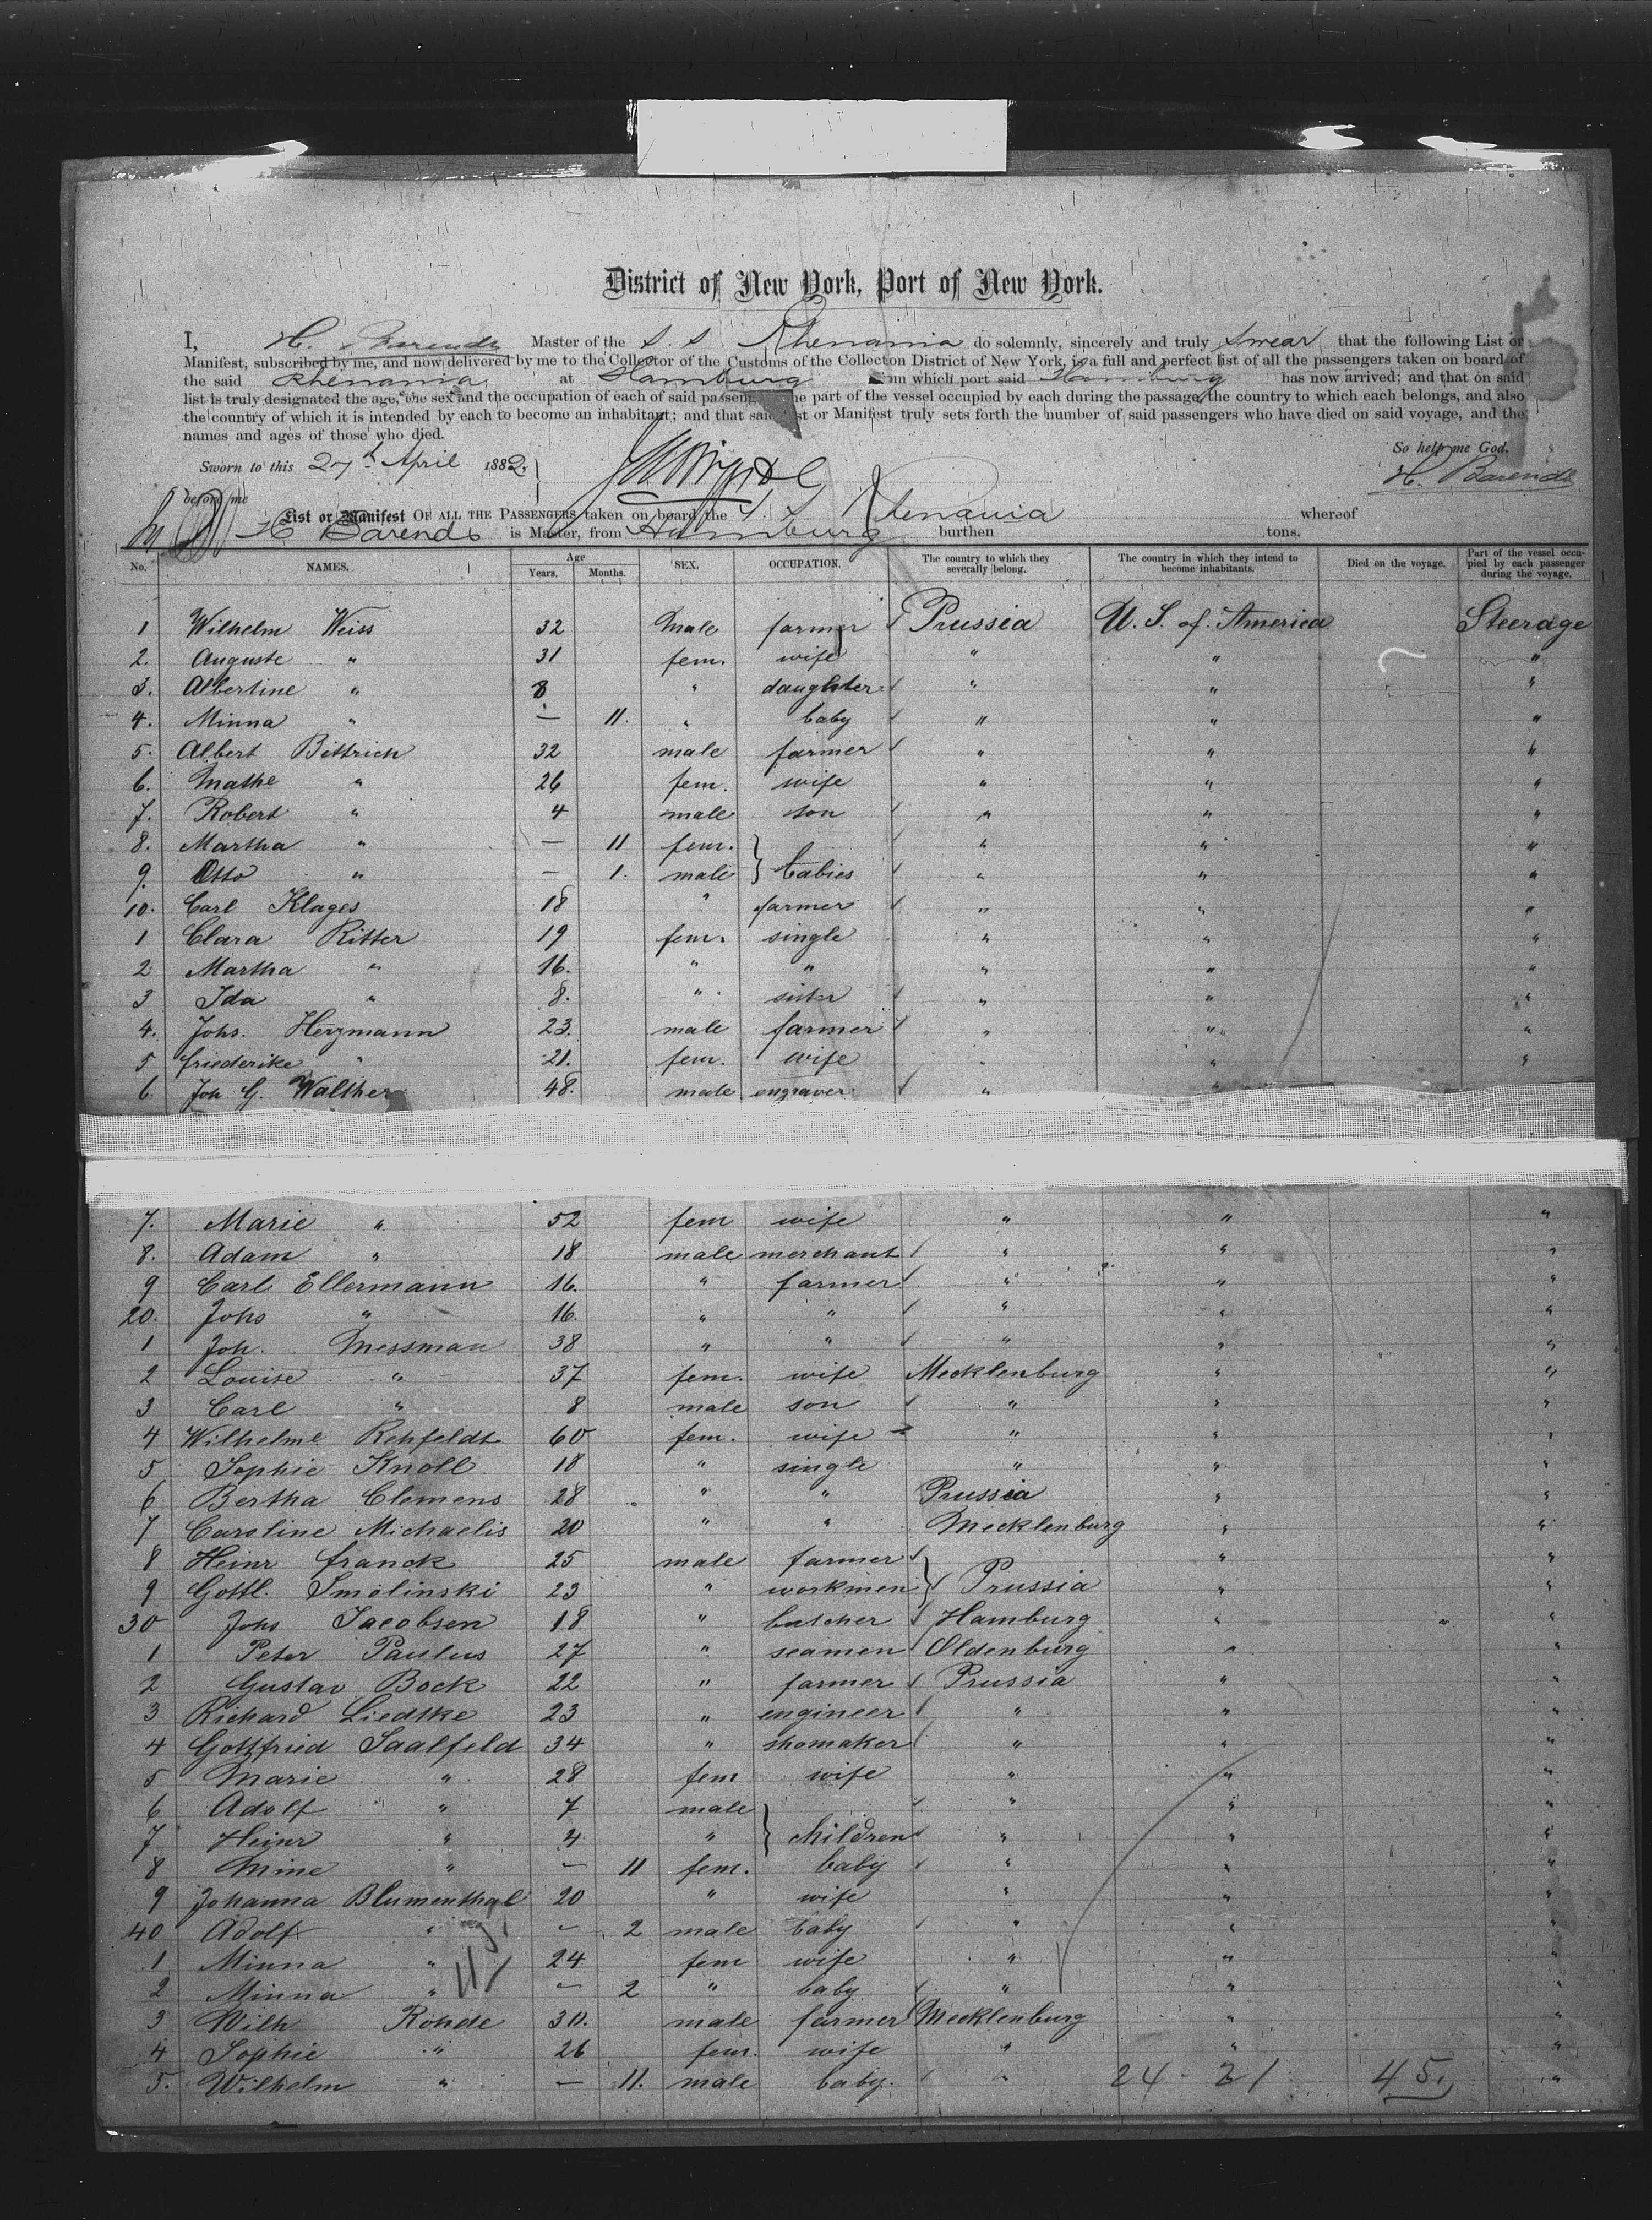 District of New York, Port of New York.
I, H. Barends Master of the S. S. Rhenania do solemnly, sincerely and truly swear that the following List or
Manifest, subscribed by me, and now delivered by me to the Collector of the Customs of the Collection District of New York, is a full and perfect list of all the passengers taken on board of
the said Rhenania at Hamburg from which port said Hamburg has now arrived; and that on said
list is truly designated the age, the sex and the occupation of each of said passengers the part of the vessel occupied by each during the passage, the country to which each belongs, and also
the country of which it is intended by each to become an inhabitant; and that said List or Manifest truly sets forth the number of said passengers who have died on said voyage, and the
names and ages of those who died.
So help me God.
Sworn to this 27th April 1882.
H. Barends
before me
List or Manifest OF ALL THE PASSENGERS taken on board the S. S. Rhenania whereof
H Barends is Master, from Hamburg burthen tons.
No. NAMES. Age Years. Months. SEX. OCCUPATION. The country to which they severally belong. The country in which they intend to become inhabitants. Died on the voyage. Part of the vessel occupied by each passenger during the voyage.
1 Wilhelm Weiss 32 Male farmer Prussia U. S. of America Steerage
2. Auguste " 31 fem. wife " " "
3. Albertine " 8 " daughter " " "
4. Minna " — 11. " baby " " "
5. Albert Bittrich 32 male farmer " " "
6. Mathe " 26 fem. wife " " "
7. Robert " 4 male son " " "
8. Martha " — 11 fem. " " "
9. Otto " — 1. male babies " " "
10. Carl Klages 18 " farmer " " "
1 Clara Ritter 19 fem. single " " "
2 Martha " 16. " " " " "
3 Ida " 8. " sister " " "
4. Johs. Herzmann 23. male farmer " " "
5 friederike " 21. fem. wife " " "
6. Joh G. Walther 48. male engraver " "
7. Marie " 52 fem wife " " "
8. Adam " 18 male merchant " " "
9 Carl Ellermann 16. " farmer " " "
20. Johs " 16. " " " " "
1 Joh. Messman 38 " " " " "
2 Louise " 37 fem. wife Mecklenburg " "
3 Carl " 8 male son " " "
4 Wilhelme Rehfeldt 60 fem. wife " " "
5 Sophie Knoll 18 " single " " "
6 Bertha Clemens 28 " " Prussia " "
7 Caroline Michaelis 20 " " Mecklenburg " "
8 Heinr franck 25 male farmer " "
9 Gottl. Smolinski 23 " workmen Prussia " "
30 Johs Jacobsen 18 " butcher Hamburg " "
1 Peter Paulus 27 " seamen Oldenburg " "
2 Gustav Bock 22 " farmer Prussia " "
3 Richard Liedtke 23 " engineer " " "
4 Gottfried Saalfeld 34 " shomaker " " "
5 Marie " 28 fem wife " " "
6 Adolf " 7 male " " "
7 Heinr " 4 " children " " "
8 Mine " — 11 fem. baby " " "
9 Johanna Blumenthal 20 " wife " " "
40 Adolf " — 2 male baby " " "
1 Minna " 24 fem wife " " "
2 Minna " — 2 " baby " " "
3 Wilh Rohde 30. male farmer Mecklenburg " "
4 Sophie " 26 fem. wife " " "
5. Wilhelm " — 11. male baby. " 24 - 21 45. "